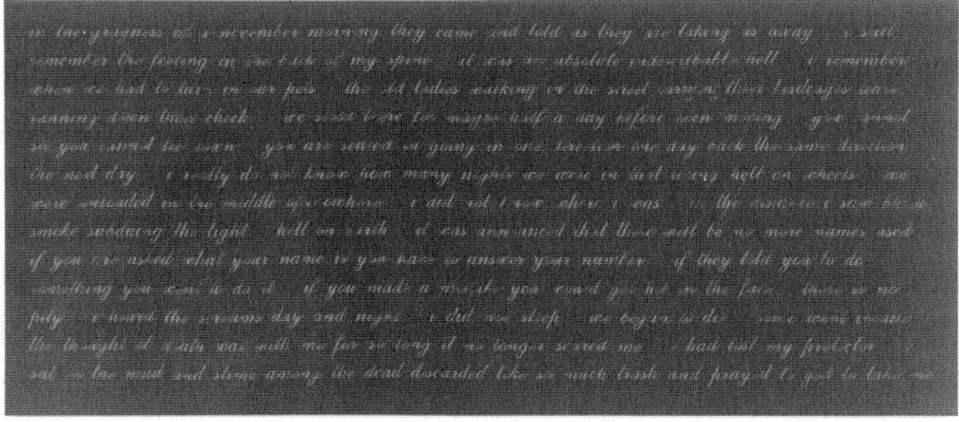 in the grayness of a november morning they came and told us they are taking us away i still
remember the feeling in the back of my spine it was an absolute indescribable hell i remember
when we had to turn in our pets the old ladies walking in the street carrying their tears
running down their cheek we must have for maybe half a day before even moving you cannot
sit you cannot lie down you are scared in going in one direction one day back the same direction
the next day i really do not know how many nights we were in that hell on wheels we
were unloaded in the middle of nowhere i did not know where i was in the distance i saw
smoke subduing the light hell on earth it was announced that there will be no more names used
if you are asked what your name is you have to answer your number if they told you to do
something you had to do it if you made a mistake you could get hit in the face there is no
pity i heard the screams day and night i did not sleep we began to die some went insane
the thought of death was with me for so long it no longer scared me had lost my protector
sat in the mud and slime among the dead discarded like so much trash and prayed to god to take me